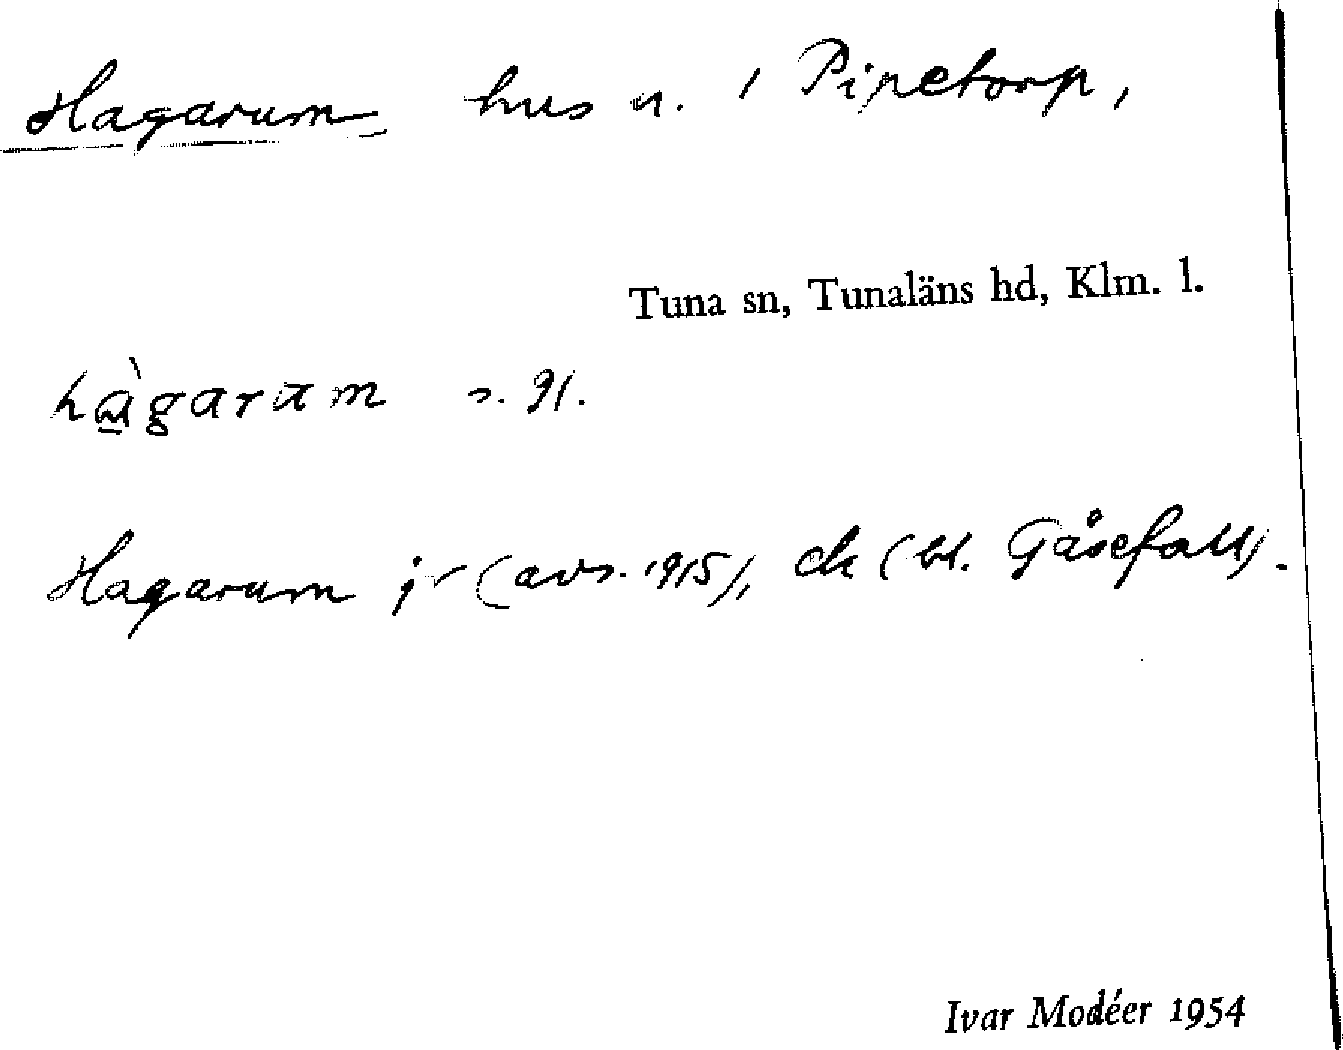 Hagarum hus n. i Pipetorp,
Tuna sn, Tunaläns hd, Klm. l.
hàgarum s. 91.
Hagarum jr (avs. 1915), ek (bl. Gåsefall).
Ivar Modéer 1954